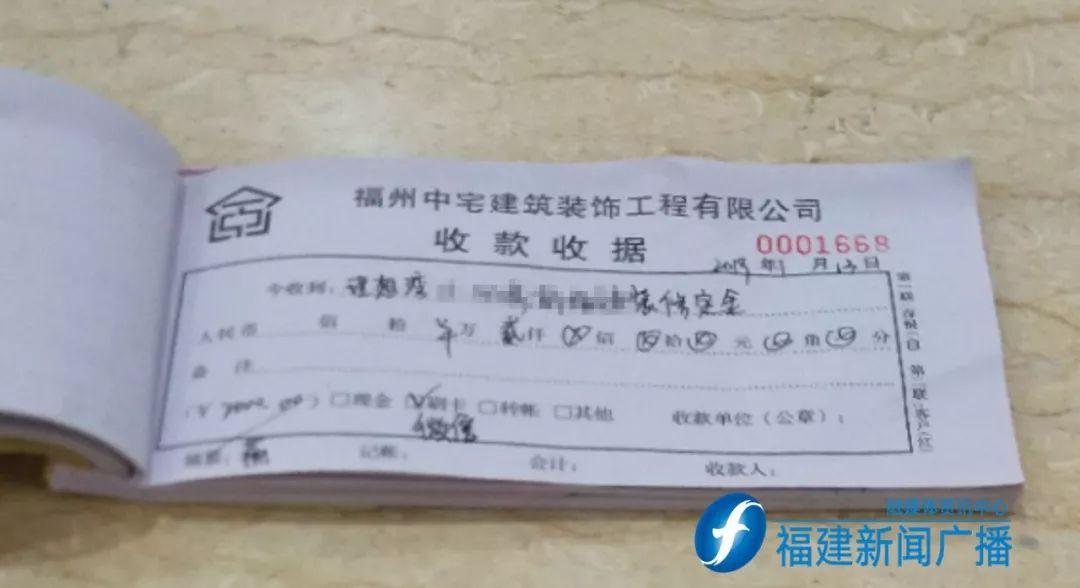 福州中宅建筑装饰工程有限公司
收款收据
0001668
2019年1月13日
今收到: 装修定金
人民币 佰 拾 万 贰仟 佰 拾 元 角 分
备注
(¥ ) □现金 刷卡 □转帐 □其他 收款单位(公章):
微信
记帐: 会计: 收款人:
第一联:存根(白) 第二联:客户(红)
融媒体资讯中心
福建新闻广播